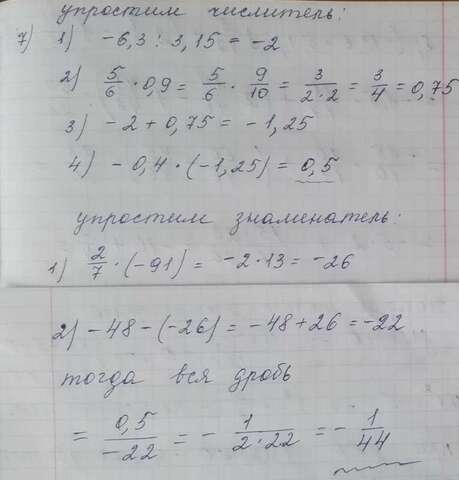 упростим числитель:
7) 1) -6,3 : 3,15 = -2
2) 5/6 · 0,9 = 5/6 · 9/10 = 3/(2·2) = 3/4 = 0,75
3) -2 + 0,75 = -1,25
4) -0,4 · (-1,25) = 0,5
упростим знаменатель:
1) 2/7 · (-91) = -2·13 = -26
2) -48 - (-26) = -48 + 26 = -22
тогда вся дробь
= 0,5/-22 = - 1/(2·22) = - 1/44